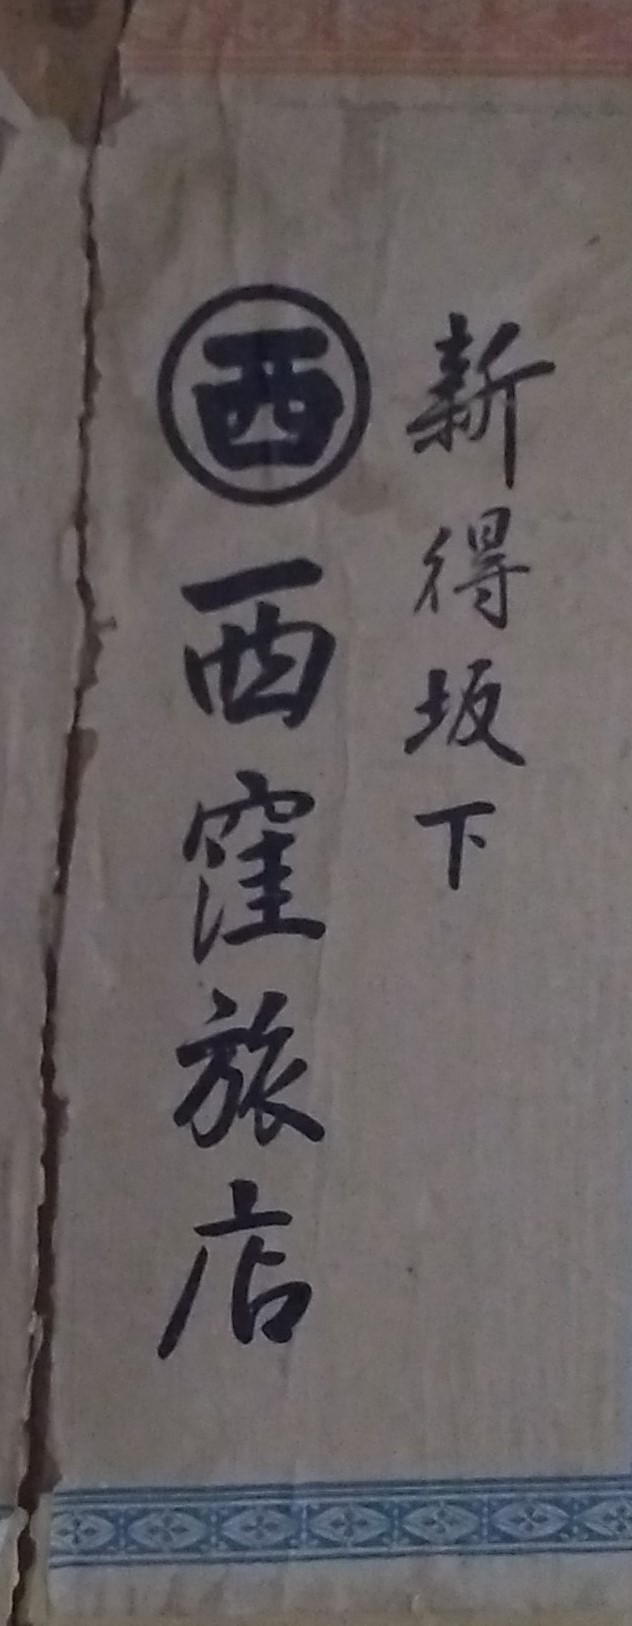 新得坂下
㊄西窪旅店